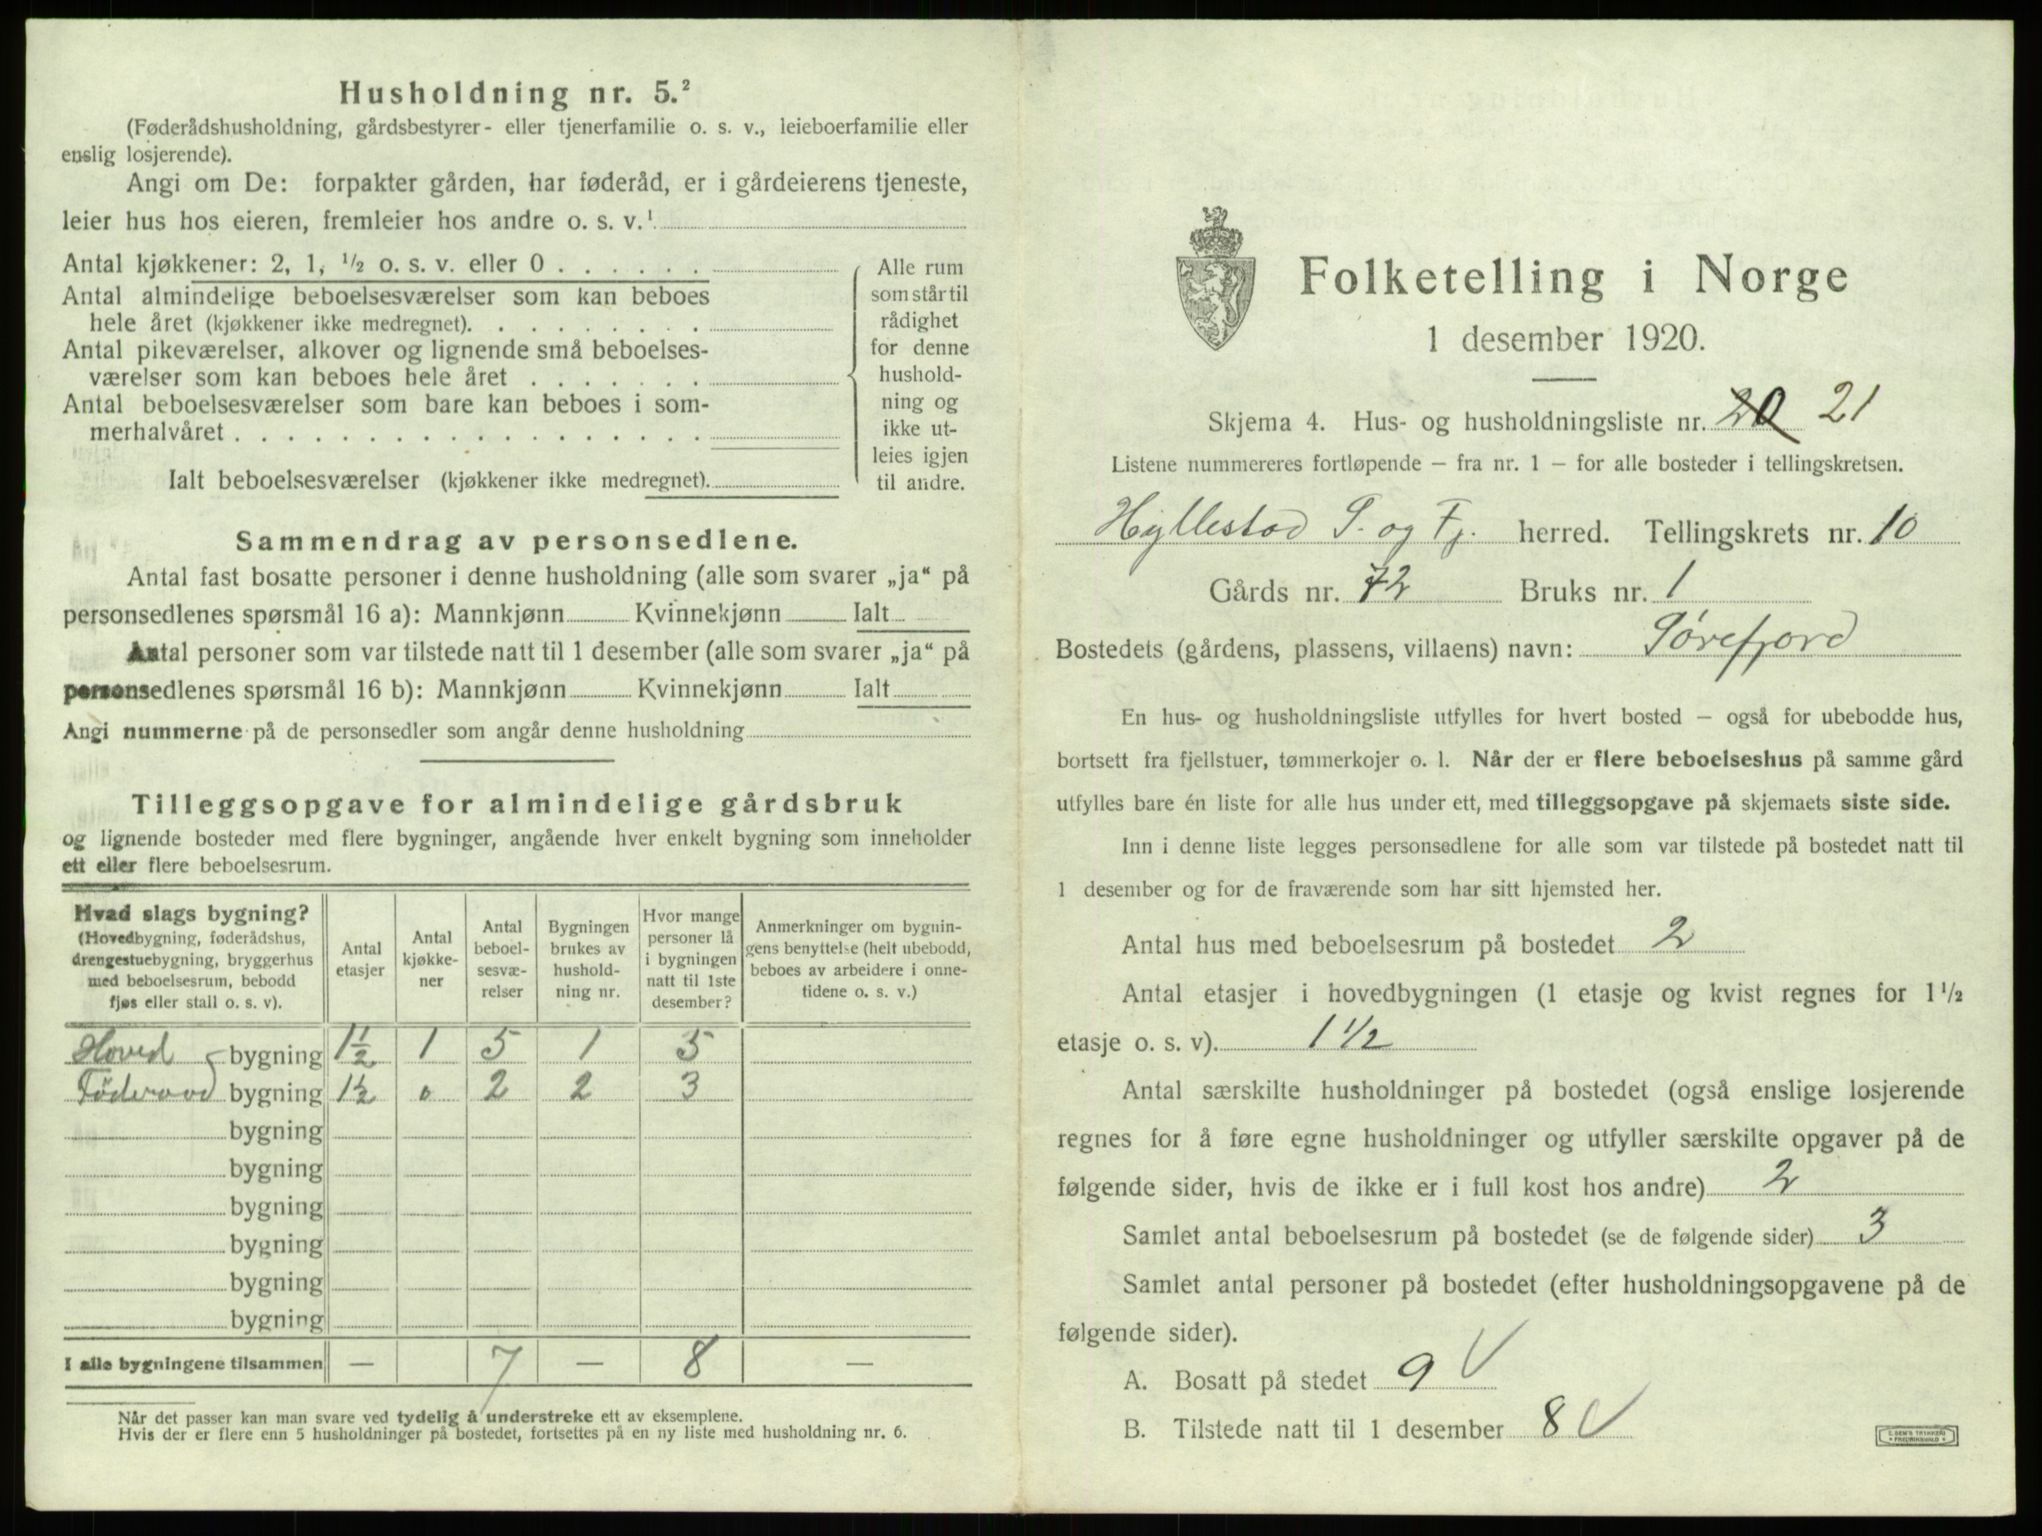 Husholdning nr. 5.²
(Føderådshusholdning, gårdsbestyrer- eller tjenerfamilie o. s. v., leieboerfamilie eller
enslig losjerende).
Angi om De: forpakter gården, har føderåd, er i gårdeierens tjeneste,
leier hus hos eieren, fremleier hos andre o. s. v.¹
Antal kjøkkener: 2, 1, ½ o. s. v. eller 0 . . . . . .
Antal almindelige beboelsesværelser som kan beboes
hele året (kjøkkener ikke medregnet). . . . . . . . .
Antal pikeværelser, alkover og lignende små beboelses-
værelser som kan beboes hele året . . . . . . .
Antal beboelsesværelser som bare kan beboes i som-
merhalvåret . . . . . . . . . . . . . . . . . .
Ialt beboelsesværelser (kjøkkener ikke medregnet).
Alle rum
som står til
rådighet
for denne
hushold-
ning og
ikke ut-
leies igjen
til andre.
Sammendrag av personsedlene.
Antal fast bosatte personer i denne husholdning (alle som svarer „ja“ på
personsedlenes spørsmål 16 a): Mannkjønn Kvinnekjønn Ialt
Antal personer som var tilstede natt til 1 desember (alle som svarer „ja“ på
personsedlenes spørsmål 16 b): Mannkjønn Kvinnekjønn Ialt
Angi nummerne på de personsedler som angår denne husholdning
Tilleggsopgave for almindelige gårdsbruk
og lignende bosteder med flere bygninger, angående hver enkelt bygning som inneholder
ett eller flere beboelsesrum.
Hvad slags bygning?
(Hovedbygning, føderådshus,
drengestuebygning, bryggerhus
med beboelsesrum, bebodd
fjøs eller stall o. s. v).
Antal
etasjer
Antal
kjøkke-
ner
Antal
beboel-
sesvæ-
relser
Bygningen
brukes av
hushold-
ning nr.
Hvor mange
personer lå
i bygningen
natt til 1ste
desember?
Anmerkninger om bygnin-
gens benyttelse (helt ubebodd,
beboes av arbeidere i onne-
tidene o. s. v.)
Hoved bygning 1½ 1 5 1 5
Føderaad bygning 1½ 0 2 2 3
bygning
bygning
bygning
bygning
bygning
bygning
I alle bygningene tilsammen — 7 — 8 —
Når det passer kan man svare ved tydelig å understreke ett av eksemplene.
Hvis der er flere enn 5 husholdninger på bostedet, fortsettes på en ny liste med husholdning nr. 6.
Folketelling i Norge
1 desember 1920.
Skjema 4. Hus- og husholdningsliste nr. 20 21
Listene nummereres fortløpende – fra nr. 1 – for alle bosteder i tellingskretsen.
Hyllestad S. og Fj. herred. Tellingskrets nr. 10
Gårds nr. 72 Bruks nr. 1
Bostedets (gårdens, plassens, villaens) navn: Sørefjord
En hus- og husholdningsliste utfylles for hvert bosted – også for ubebodde hus,
bortsett fra fjellstuer, tømmerkojer o. l. Når der er flere beboelseshus på samme gård
utfylles bare én liste for alle hus under ett, med tilleggsopgave på skjemaets siste side.
Inn i denne liste legges personsedlene for alle som var tilstede på bostedet natt til
1 desember og for de fraværende som har sitt hjemsted her.
Antal hus med beboelsesrum på bostedet 2
Antal etasjer i hovedbygningen (1 etasje og kvist regnes for 1½
etasje o. s. v). 1½
Antal særskilte husholdninger på bostedet (også enslige losjerende
regnes for å føre egne husholdninger og utfyller særskilte opgaver på de
følgende sider, hvis de ikke er i full kost hos andre) 2
Samlet antal beboelsesrum på bostedet (se de følgende sider) 3
Samlet antal personer på bostedet (efter husholdningsopgavene på de
følgende sider).
A. Bosatt på stedet 9
B. Tilstede natt til 1 desember 8